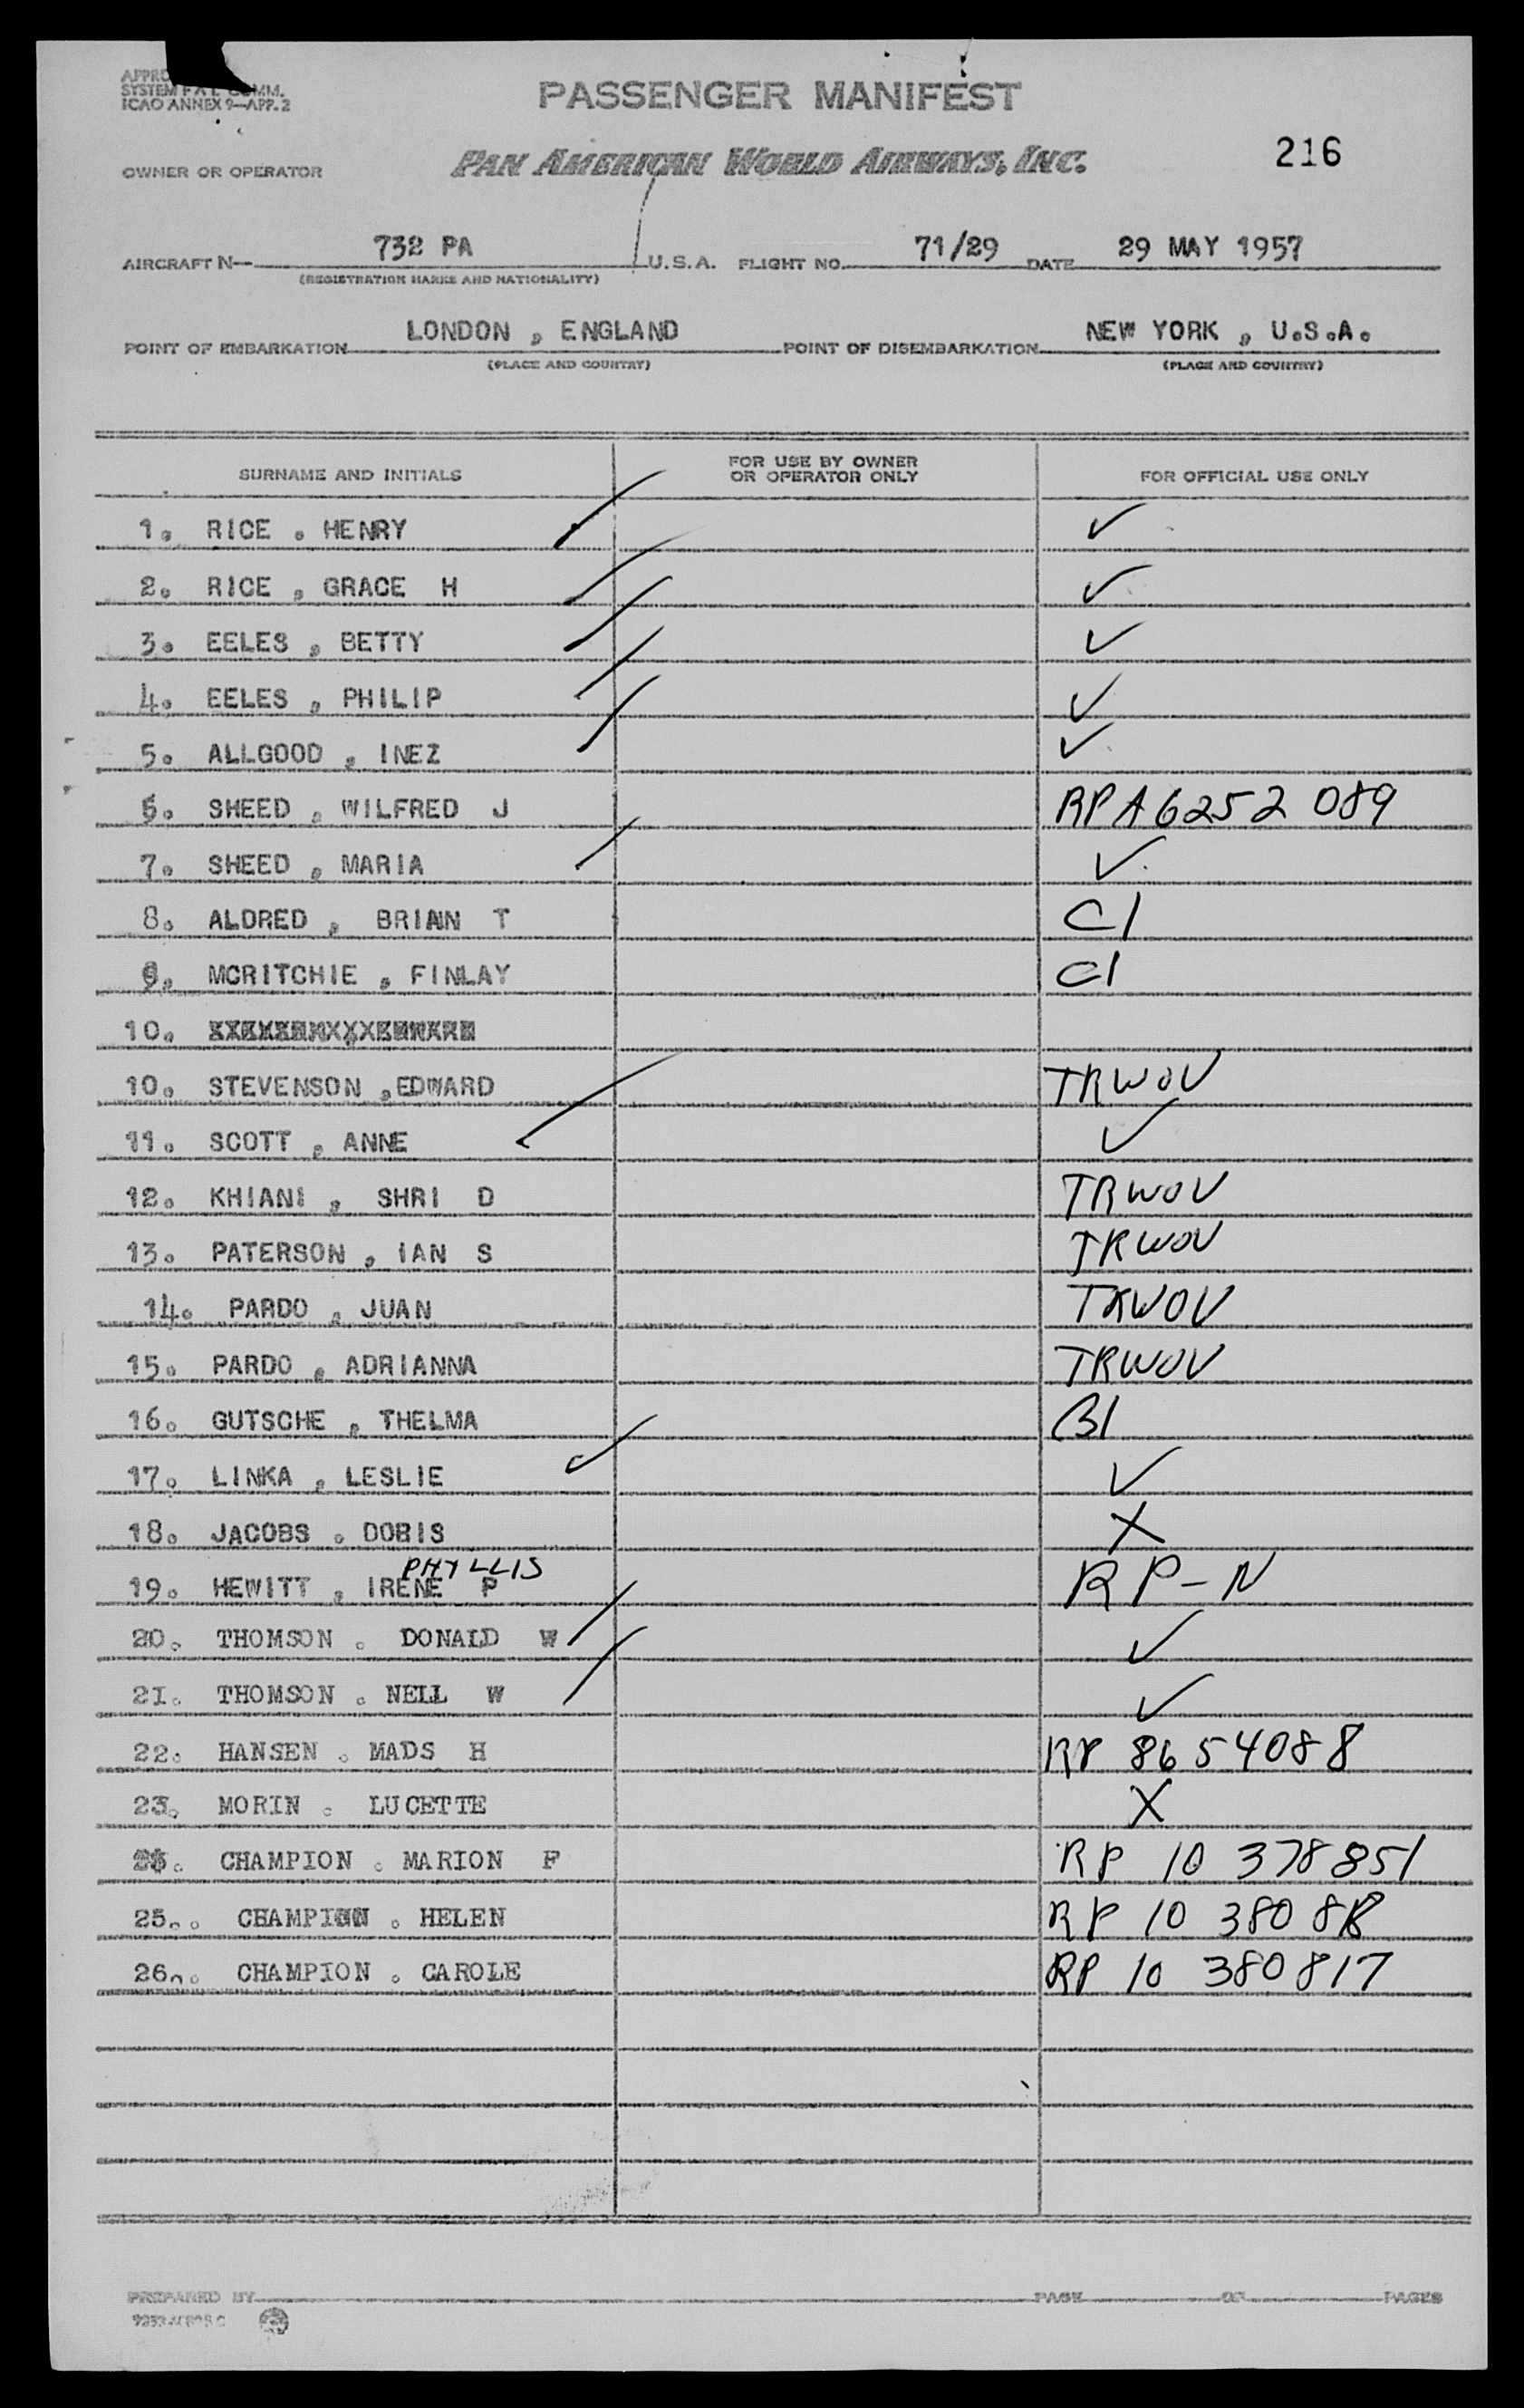 SYSTEM F A L COMM.
ICAO ANNEX 9—APP. 2
PASSENGER MANIFEST
216
OWNER OR OPERATOR PAN AMERICAN WORLD AIRWAYS, INC.
AIRCRAFT N— 732 PA U.S.A. FLIGHT NO. 71/29 DATE 29 MAY 1957
(REGISTRATION MARKS AND NATIONALITY)
POINT OF EMBARKATION LONDON , ENGLAND POINT OF DISEMBARKATION NEW YORK , U.S.A.
(PLACE AND COUNTRY) (PLACE AND COUNTRY)
SURNAME AND INITIALS FOR USE BY OWNER OR OPERATOR ONLY FOR OFFICIAL USE ONLY
1. RICE . HENRY ✓
2. RICE , GRACE H ✓
3. EELES , BETTY ✓
4. EELES , PHILIP ✓
5. ALLGOOD , INEZ ✓
6. SHEED , WILFRED J RP A6252 089
7. SHEED , MARIA ✓
8. ALDRED , BRIAN T C1
9. MCRITCHIE , FINLAY C1
10.
10. STEVENSON ,EDWARD TRWOV
11. SCOTT , ANNE ✓
12. KHIANI , SHRI D TRWOV
13. PATERSON , IAN S TRWOV
14. PARDO , JUAN TRWOV
15. PARDO , ADRIANNA TRWOV
16. GUTSCHE , THELMA B1
17. LINKA , LESLIE ✓
18. JACOBS . DORIS X
PHYLLIS
19. HEWITT , IRENE P RP-N
20. THOMSON . DONALD W ✓
21. THOMSON . NELL W ✓
22. HANSEN . MADS H RP 8654088
23. MORIN . LUCETTE X
CHAMPION . MARION F RP 10 378851
25.. CHAMPION . HELEN RP 10 380
26.. CHAMPION . CAROLE RP 10 380817
PREPARED BY PAGE OF PAGES